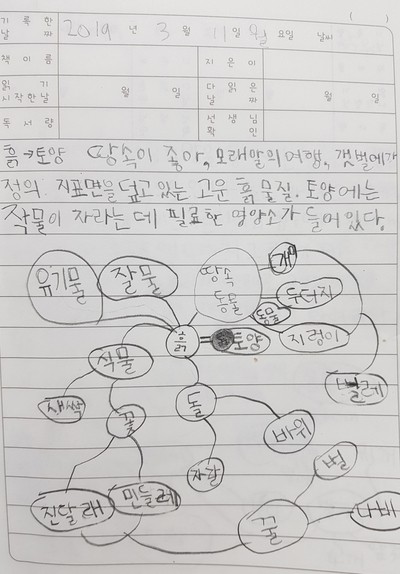 ( )
기록한 날짜 2019 년 3 월 11 일 월 요일 날씨
책 이름 지은이
읽기 시작한 날 월 일 다 읽은 날짜 월 일
독서량 선생님 확인
흙→토양 땅속이 좋아, 모래알의 여행, 갯벌에가
정의: 지표면을 덮고 있는 고운 흙 물질. 토양에는
작물이 자라는 데 필료한 영양소가 들어있다.
유기물
잘물
땅속
동물
개미
두더지
동물
지렁이
벌레
흙 = 토양
식물
새싹
꽃
돌
바위
자갈
진달래
민들레
꿀
벌
나비